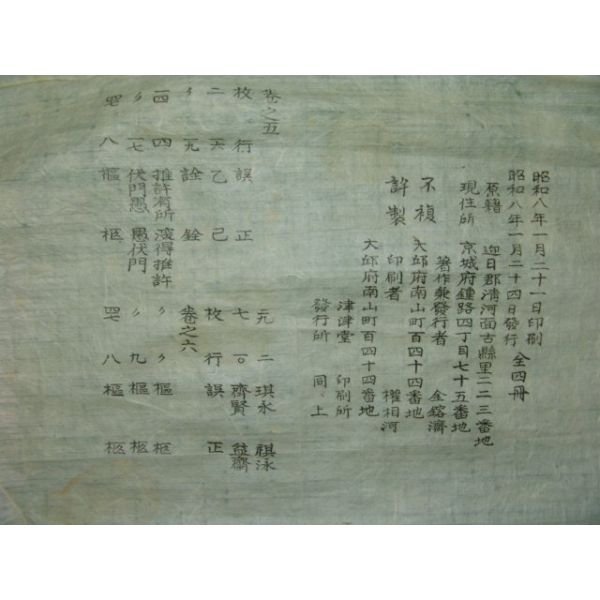 昭和八年一月二十一日印刷
昭和八年一月二十四日發行 全四冊
原籍 迎日郡淸河面古縣里二二三番地
現住所 京城府鍾路四丁目七十五番地
著作兼發行者 金鎔濟
不複許製
大邱府南山町百四十四番地
印刷者 權相河
大邱府南山町百四十四番地
津津堂 印刷所
發行所 同 上
卷之五
枚 行 誤 正
二 一六 乙 己
〃 一九 詮 銓
一四 四 推許有所 滾得推許
〃 一七 伏門愚 愚伏門
四 八 樞 柩
一九 二 琪永 祺泳
七 一〇 齊賢 益齋
枚 行 誤 正
卷之六
〃 〃 樞 柩
〃 九 樞 柩
八 樞 柩